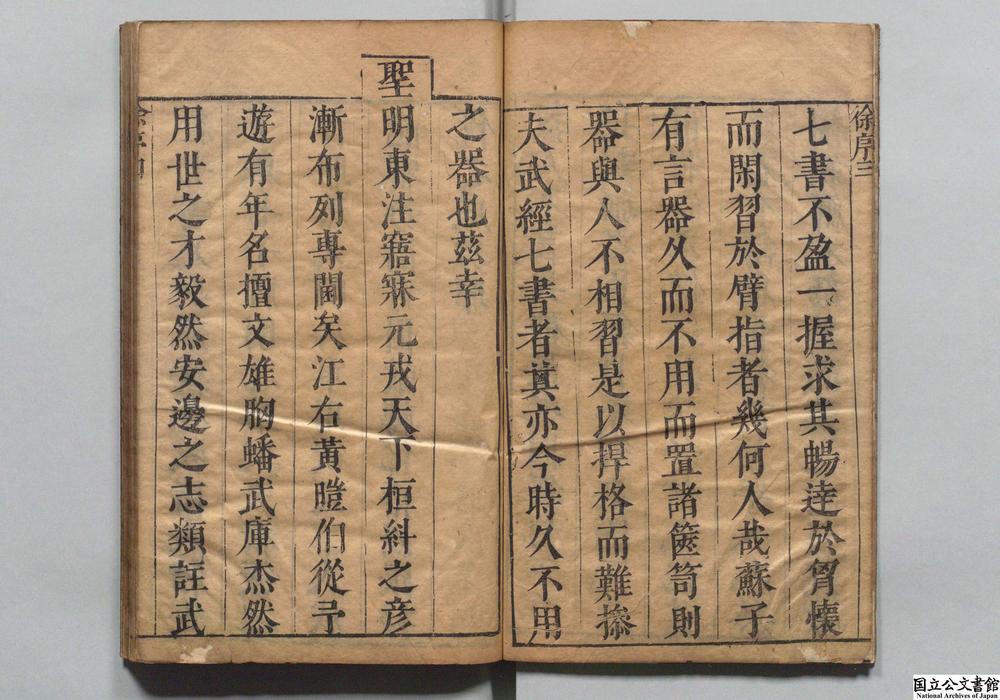 徐序三
七書不盈一握求其暢達於胷懷
而閑習於臂指者幾何人哉蘇子
有言器久而不用而置諸篋笥則
器與人不相習是以捍格而難摻
夫武經七書者眞亦今時久不用
之器也茲幸
聖明東注寤寐元戎天下桓糾之彦
漸布列專閫矣江右黃曀伯從予
遊有年名擅文雄胸蟠武庫杰然
用世之才毅然安邊之志類註武
国立公文書館
National Archives of Japan